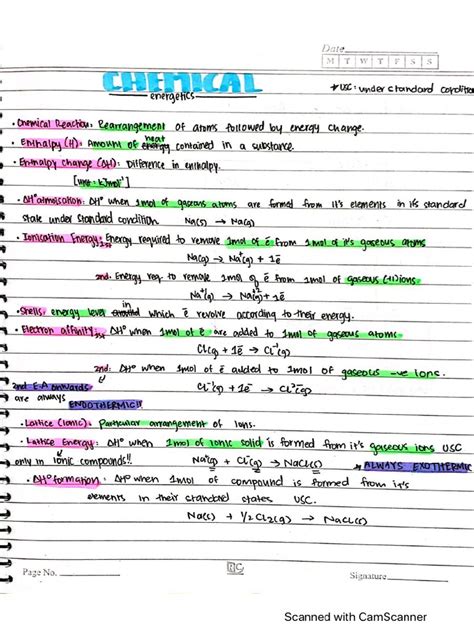 Date
M T W T F S S
CHEMICAL
energetics
* USC: under standard condition
• Chemical Reaction: Rearrangement of atoms followed by energy change.
• Enthalpy (H): Amount of energy heat contained in a substance.
• Enthalpy change (ΔH): Difference in enthalpy.
[unit: kJmol⁻¹]
• ΔH°atomisation: ΔH° when 1mol of gaseous atoms are formed from it's elements in its standard
state under standard condition Na(s) → Na(g)
• Ionisation Energy: 1st Energy required to remove 1mol of ē from 1mol of it's gaseous atoms
Na(g) → Na⁺(g) + 1ē
2nd: Energy req. to remove 1mol of ē from 1mol of gaseous (+1)ions
Na⁺(g) → Na⁺²(g) + 1ē
• Shells: energy level around in which ē revolve according to their energy.
• Electron affinity: 1st ΔH° when 1mol of ē are added to 1mol of gaseous atoms
Cl(g) + 1ē → Cl⁻(g)
2nd: ΔH° when 1mol of ē added to 1mol of gaseous -ve Ions.
2nd E.A onwards Cl⁻(g) + 1ē → Cl²⁻(g)
are always ENDOTHERMIC!!
• Lattice (Ionic): Particular arrangement of Ions.
• Lattice Energy: ΔH° when 1mol of ionic solid is formed from it's gaseous ions USC
only in ionic compounds!! Na⁺(g) + Cl⁻(g) → NaCl(s) * ALWAYS EXOTHERMIC
• ΔH°formation: ΔH° when 1mol of compound is formed from it's
elements in their standard states USC.
Na(s) + 1/2 Cl₂(g) → NaCl(s)
Page No.
Signature
Scanned with CamScanner